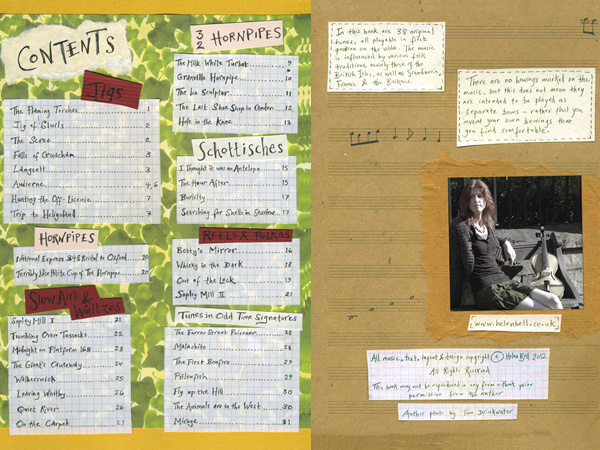 CONTENTS
Jigs
The Flaming Torches 1
Jig of Slurls 2
The Scree 2
Falls of Cruachan 3
Langsett 3
Audierne 4,6
Hunting the Off-Licence 7
Trip to Heligoland 7
HORNPIPES
National Express 348 Bristol to Oxford 20
Terribly Nice Polite Cup of Tea Hornpipe 20
Slow Airs &
Waltzes
Sapley Mill I 21
Tumbling Over Tussocks 22
Midnight on Platform 16B 23
The Giant's Causeway 24
Walberswick 25
Leaving Whitby 26
Quiet River 26
On the Carpet 27
3
2 HORNPIPES
The Milk White Turbot 9
Granville Hornpipe 10
The Ice Sculptor 11
The Last Shoe Shop in Camden 12
Hole in the Knee 13
Schottisches
I Thought it was an Antelope 15
The Hour After 15
Burlelty 17
Searching for Smells in 17
REELS & POLKAS
Betty's Mirror 16
Whisky in the Dark 18
Out of the Loch 19
Sapley Mill II 21
Tunes in Odd Time Signatures
The Farrar Street Poisoner 28
Malachite 28
The First Bonfire 29
Pillowfish 29
Fly up the Hill 30
The Animals are in the West 30
Mirage 31
In this book are 38 original
tunes, all playable in first
position on the violin. The music
is influenced by various folk
traditions, mainly those of the
British Isles, as well as Scandinavia,
France & the Balkans.
There are no bowings marked on the
music, but this does not mean they
are intended to be played as
separate bows - rather that you
invent your own bowings that
you find comfortable.
www.helenbell.co.uk
All music, text, layout & design copyright © Helen Bell 2012
All Rights Reserved
This book may not be reproduced in any form without prior
permission from the author
Author photo by Tom Drinkwater